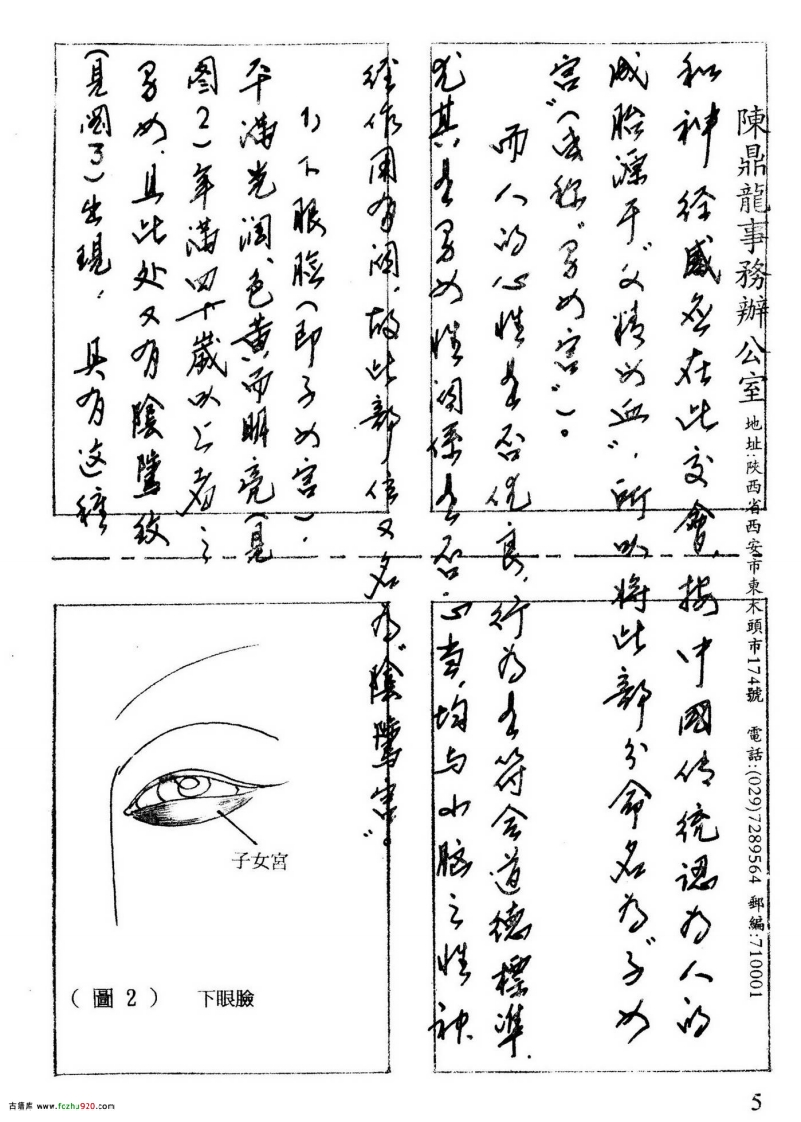 陳鼎龍事務辦公室 地址:陝西省西安市東木頭市174號 電話:(029)7289564 郵編:710001
和神经感应在此交會，按中國传统認为人的
成胎源于“父精母血”，所以將此部分命名为“子女
宫”（或称“男女宫”）。
而人的心性是否优良，行为是符合道德標準，
尤其是男女性関係是否心当，均与小脑之性神
经作用有関，故此部位又名为“陰騭宫”。
1）下眼臉（即子女宫），
平滿光润、色黄而明亮（見
图2）年满四十歲以上者之
男女，且此处又有陰騭纹
（見図3）出現，具有这種
子女宮
（圖2） 下眼臉
5
古籍库 www.fczhu920.com